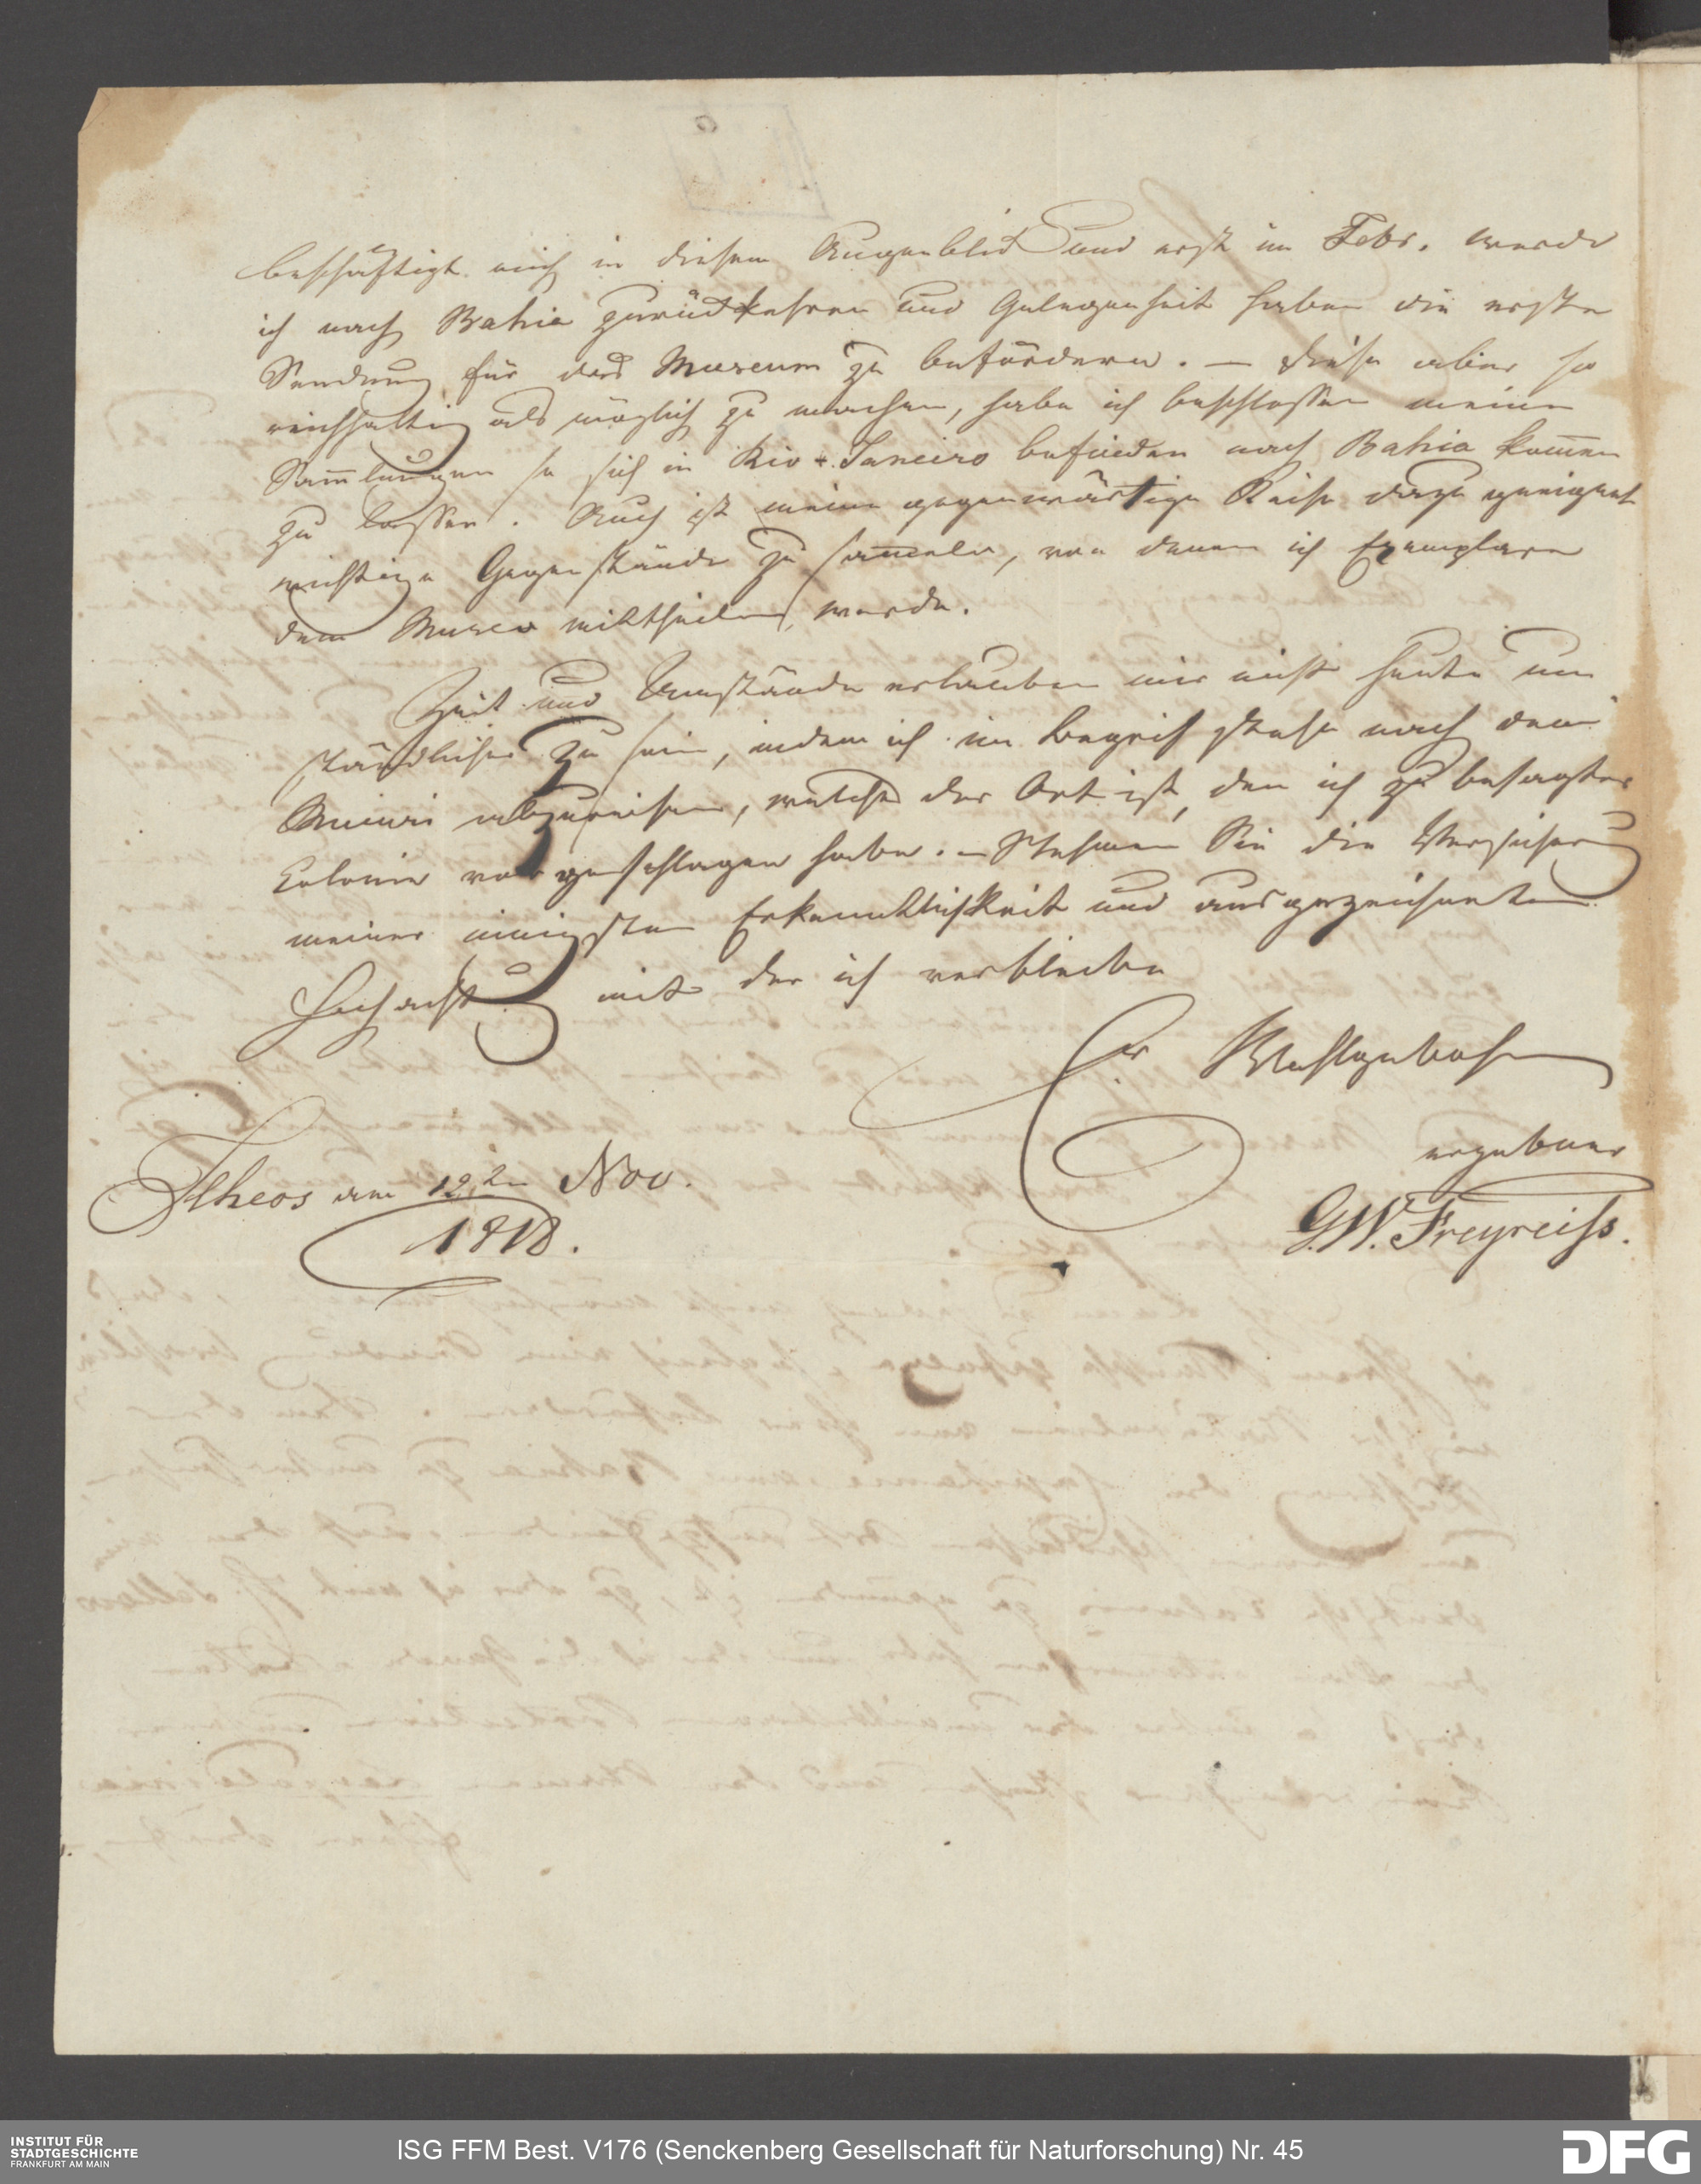 beschäftigt mich in diesem Augenblick und erst im Febr. werde
ich nach Bahia zurückkehren und Gelegenheit haben die erste
Sendung für das Museum zu befördern. — Diese aber so
reichhaltig als möglich zu machen, habe ich beschlossen meine
Sam̄lungen so sich in Rio d. Janeiro befinden nach Bahia kom̄en
zu lassen. Auch ist meine gegenwärtige Reise dazu geeignet
wichtige Gegenstände zu sam̄eln, von denen ich Exemplare
dem Museo mittheilen werde.
Zeit und Umstände erlauben mir nicht heute um
ständlicher zu sein, indem ich im Begrif stehe nach dem
abzureisen, welches der Ort ist, den ich zu besagter
Colonie vorgeschlagen habe. — Nehmen Sie die Versicherung
meiner innigsten Erkenntlichkeit und ausgezeichneten
Hochachtung mit der ich verbleibe
Ew Wohlgeboren
ergebner
G.W. Freyreiss.
Ilheos am 12ten Nov.
1818.
INSTITUT FÜR
STADTGESCHICHTE
FRANKFURT AM MAIN
ISG FFM Best. V176 (Senckenberg Gesellschaft für Naturforschung) Nr. 45
DFG